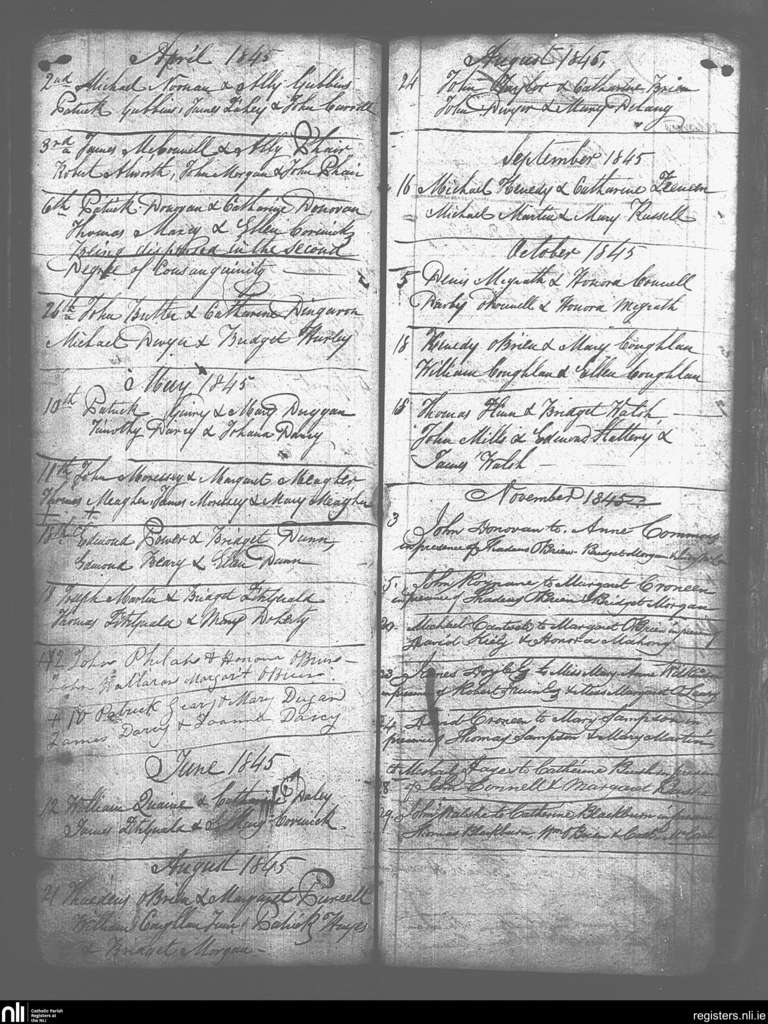 April 1845
2nd Michael Noonan & Ally Gubbins
Patrick Gubbins, James Lahey & John Carroll
3rd James McConnell & Ally Phair
Robert Alworth, John Morgan & John Phair
6th Patrick Donovan & Catharine Donovan
Thomas Maxey & Ellen
being dispensed in the Second
Degree of Consanguinity
26th John Butler & Catharine
Michael Dwyer & Bridget Hurley
May 1845
10th Patrick Guiry & Mary Duggan
Timothy Darcy & Johana Darcy
11th John Morrissey & Margaret Meagher
Thomas Meagher, James Morissey & Mary Meagher
18th Edmond Power & Bridget Dunn,
Edmond Leary & Ellen Dunn
18 Joseph Martin & Bridget Fitzgerald
Thomas Fitzgerald & Mary Doherty
John & Honora O'Brien
John Hallaran Margart O'Brien
Patrick Geary & Mary Dugan
James Darcy & Joanna Darcy
June 1845
12 William & Catharine Daley
James Fitzgerald & Mary
August 1845
21 Thadeus O'Brien & Margaret Purcell
William Coughlan Junr, Patrick Hayes
& Bridget Morgan
August 1845,
24 John Taylor & Catharine Brien
John Dwyer & Mary Delany
September 1845
16 Michael Kenedy & Catharine
Michael Martin & Mary Russell
October 1845
5 Denis Megrath & Honora Connell
Darby & Honora Megrath
18 Kenedy O'Brien & Mary Coughlan
William Coughlan & Ellen Coughlan
18 Thomas & Bridget Walsh
John Mills & Edmond Slattery &
James Walsh
November 1845
3 John Donovan to Anne Commons
in presence of Thadeus O'Brien Bridget Morgan
5 John to Margaret Croneen
in presence of Thadeus O'Brien & Bridget Morgan
20 Michael to Margaret O'Brien in presence of
David Kiely & Honora Mahony
23 James Doyle Esq to Miss Mary Anne
in presence of Robert Esq & Miss Margaret
24 David Croneen to Mary Sampson in
presence of Thomas Sampson & Mary Martin
Michael to Catherine in presence
of John Connell & Margaret
29 John Walshe to Catherine Blackburn in presence
Thomas Blackburn, Wm O'Brien &
nli Catholic Parish
Registers at
the NLI
registers.nli.ie